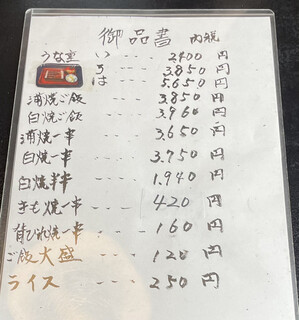 御品書 内税
うな重 い --- 2400円
ろ --- 3.850円
は --- 5.650円
蒲焼ご飯 --- 3.850円
白焼ご飯 --- 3.960円
蒲焼一串 --- 3.650円
白焼一串 --- 3.750円
白焼半串 --- 1.940円
きも焼一串 --- 420円
背びれ焼一串 --- 160円
ご飯大盛 --- 120円
ライス --- 250円